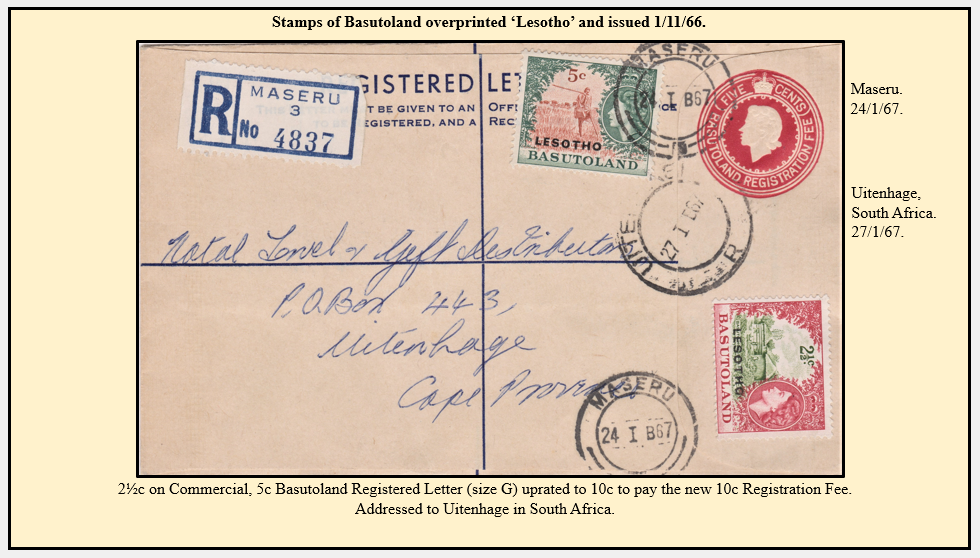 Stamps of Basutoland overprinted ‘Lesotho’ and issued 1/11/66.
GISTERED LET
T BE GIVEN TO AN OFFI CE
EGISTERED, AND A REC
R
MASERU
3
No 4837
5c
LESOTHO
BASUTOLAND
MASERU
24 I B67
FIVE CENTS
BASUTOLAND REGISTRATION FEE
Maseru.
24/1/67.
Uitenhage,
South Africa.
27/1/67.
27 I B67
Natal Towel & Gift Distributors
P.O. Box 443,
Uitenhage
Cape Province
2½c
LESOTHO
BASUTOLAND
MASERU
24 I B67
2½c on Commercial, 5c Basutoland Registered Letter (size G) uprated to 10c to pay the new 10c Registration Fee.
Addressed to Uitenhage in South Africa.